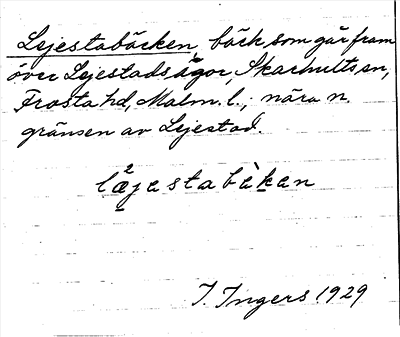 Lejestabäcken, bäck, som går fram
över Lejestads ägor, Skarhults sn,
Frosta hd, Malm. l.; nära n.
gränsen av Lejestad.
I. Ingers 1929